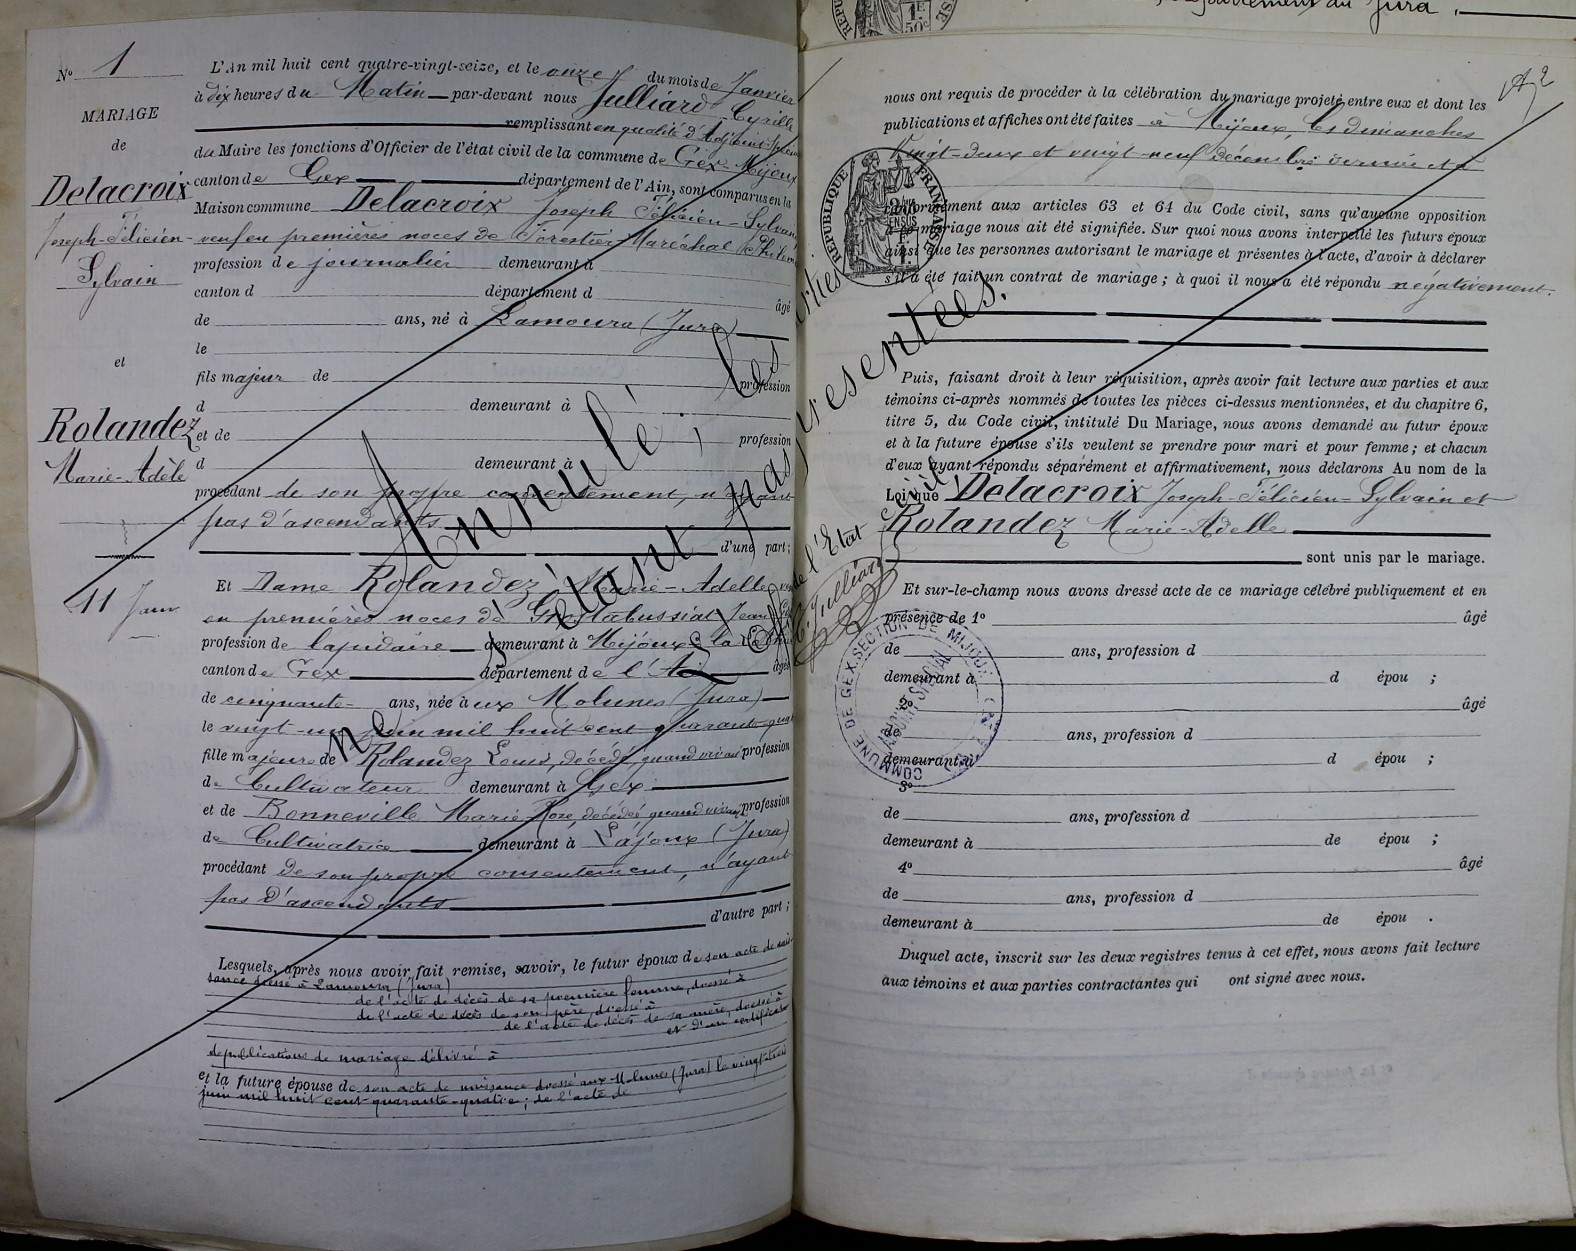 Nº 1
MARIAGE
de
Delacroix
Joseph-Félicien-
Sylvain
et
Rolandez
Marie-Adèle
11 Janv
L'An mil huit cent quatre-vingt-seize, et le onze du mois de Janvier
à dix heures du Matin par-devant nous Julliard Cyrille
remplissant en qualité d'Adjoint
du Maire les fonctions d'Officier de l'état civil de la commune de Gex-Mijoux
canton de Gex département de l'Ain, sont comparus en la
Maison commune Delacroix Joseph Félicien-Sylvain
veuf en premières noces de Forestier Maréchal
profession de journalier demeurant à
canton d département d âgé
de ans, né à Lamoura (Jura)
le
fils majeur de profession
d demeurant à
et de profession
d demeurant à
procédant de son propre consentement, n'ayant
pas d'ascendants
d'une part;
Et Dame Rolandez Marie-Adelle
en premières noces de Jean
profession de lapidaire demeurant à Mijoux
canton de Gex département de l'Ain âgée
de cinquante ans, née aux Molunes (Jura)
le vingt-un juin mil huit cent quarante-quatre
fille majeure de Rolandez Louis, décédé, quand vivait profession
de Cultivateur demeurant à Gex
et de Bonneville Marie Rose, décédée quand vivait profession
de Cultivatrice demeurant à Lajoux (Jura)
procédant de son propre consentement, n'ayant
pas d'ascendants
d'autre part;
Lesquels, après nous avoir fait remise, savoir, le futur époux de son acte de nais-
sance dressé à Lamoura (Jura)
de l'acte de décès de sa première femme, dressé à
de l'acte de décès de son père, dressé à
de l'acte de décès de sa mère, dressé à
et d'un certificat
de publications de mariage délivré à
et la future épouse de son acte de naissance dressé aux Molunes (Jura) le vingt-trois
juin mil huit cent quarante-quatre; de l'acte de
Annulé, les parties
ne s'étant pas présentées.
de l'Etat civil
C. Julliard
département du Jura
A2
nous ont requis de procéder à la célébration du mariage projeté entre eux et dont les
publications et affiches ont été faites à Mijoux, les dimanches
vingt-deux et vingt-neuf décembre dernier
conformément aux articles 63 et 64 du Code civil, sans qu'aucune opposition
à ce mariage nous ait été signifiée. Sur quoi nous avons interpellé les futurs époux
ainsi que les personnes autorisant le mariage et présentes à l'acte, d'avoir à déclarer
s'il a été fait un contrat de mariage; à quoi il nous a été répondu négativement.
RÉPUBLIQUE FRANÇAISE
Puis, faisant droit à leur réquisition, après avoir fait lecture aux parties et aux
témoins ci-après nommés de toutes les pièces ci-dessus mentionnées, et du chapitre 6,
titre 5, du Code civil, intitulé Du Mariage, nous avons demandé au futur époux
et à la future épouse s'ils veulent se prendre pour mari et pour femme; et chacun
d'eux ayant répondu séparément et affirmativement, nous déclarons Au nom de la
Loi que Delacroix Joseph-Félicien-Sylvain et
Rolandez Marie-Adelle
sont unis par le mariage.
Et sur-le-champ nous avons dressé acte de ce mariage célébré publiquement et en
présence de 1º âgé
de ans, profession d
demeurant à d épou ;
2º âgé
de ans, profession d
demeurant à d épou ;
3º
de ans, profession d
demeurant à de épou ;
4º âgé
de ans, profession d
demeurant à de épou .
COMMUNE DE GEX. SECTION DE MIJOUX
ADJOINT SPÉCIAL
Duquel acte, inscrit sur les deux registres tenus à cet effet, nous avons fait lecture
aux témoins et aux parties contractantes qui ont signé avec nous.